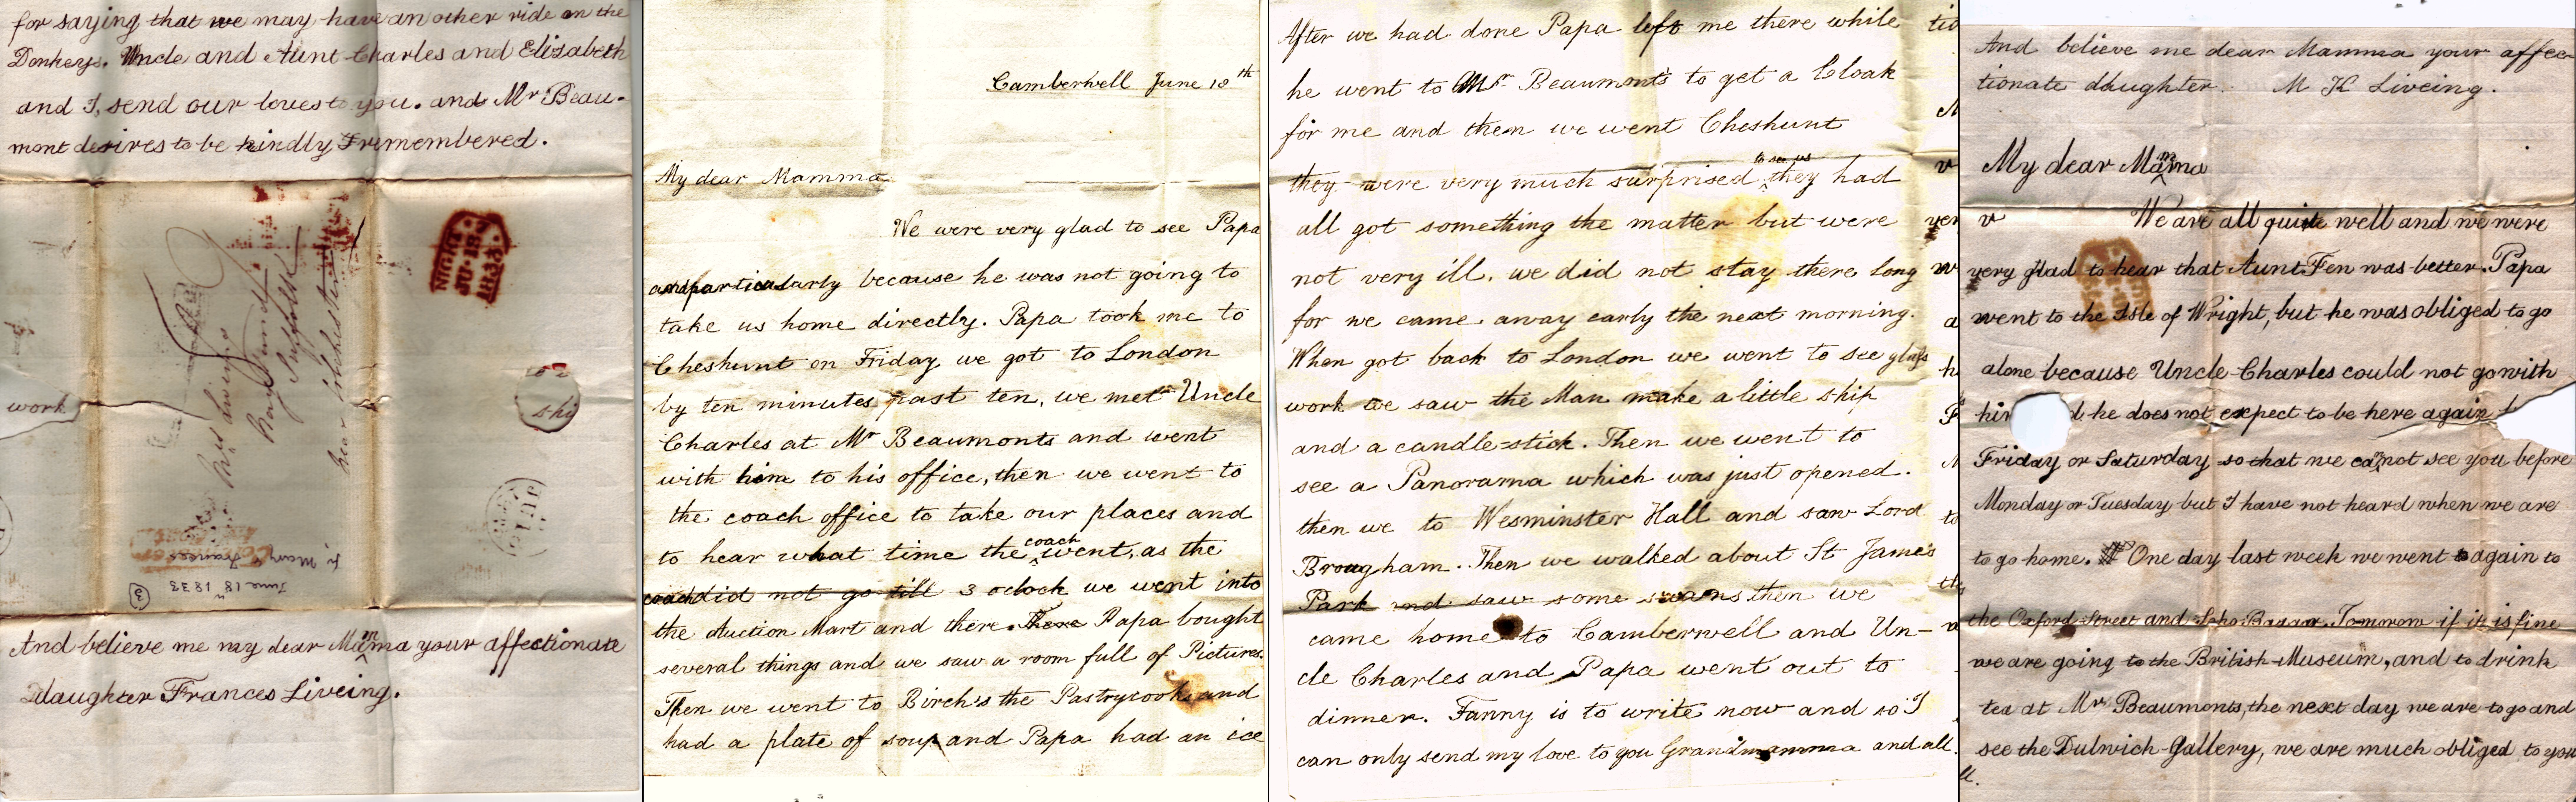 for saying that we may have an other ride on the
Donkeys. Uncle and Aunt Charles and Elizabeth
and I, send our loves to you. and Mr Beau-
mont desires to be kindly remembered.
work
shi
NIGHT
JU 18
1833
Mrs Liveing
Nayland
Suffolk
near Colchester
June 18th 1833
fr Mary Frances
3
And believe me my dear Mamma your affectionate
daughter Frances Liveing.
Camberwell June 18th
My dear Mamma
We were very glad to see Papa
and particularly because he was not going to
take us home directly. Papa took me to
Cheshunt on Friday we got to London
by ten minutes past ten, we met Uncle
Charles at Mr Beaumonts and went
with him to his office, then we went to
the coach office to take our places and
to hear what time the coach went, as the
coach did not go till 3 oclock we went into
the Auction Mart and there. There Papa bought
several things and we saw a room full of Pictures.
Then we went to Birch's the Pastrycooks and
had a plate of soup and Papa had an ice
After we had done Papa left me there while
he went to Mr Beaumont's to get a Cloak
for me and then we went Cheshunt
they were very much surprised to see us they had
all got something the matter but were
not very ill. we did not stay there long
for we came away early the next morning.
When got back to London we went to see glass
work we saw the Man make a little ship
and a candle-stick. Then we went to
see a Panorama which was just opened.
then we to Wesminster Hall and saw Lord
Brougham. Then we walked about St James
Park and saw some swans then we
came home to Camberwell and Un-
cle Charles and Papa went out to
dinner. Fanny is to write now and so I
can only send my love to you Grandmamma and all.
And believe me dear Mamma your affec
tionate daughter. M K Liveing.
My dear Mamma
We are all quite well and we were
very glad to hear that Aunt Fen was better. Papa
went to the Isle of Wright, but he was obliged to go
alone because Uncle Charles could not go with
him d he does not expect to be here again
Friday or Saturday so that we cannot see you before
Monday or Tuesday but I have not heard when we are
to go home. One day last week we went to again to
the Oxford Street and Soho Bazaar. Tomorow if it is fine
we are going to the British Museum, and to drink
tea at Mr Beaumonts, the next day we are to go and
see the Dulwich Gallery, we are much obliged to you